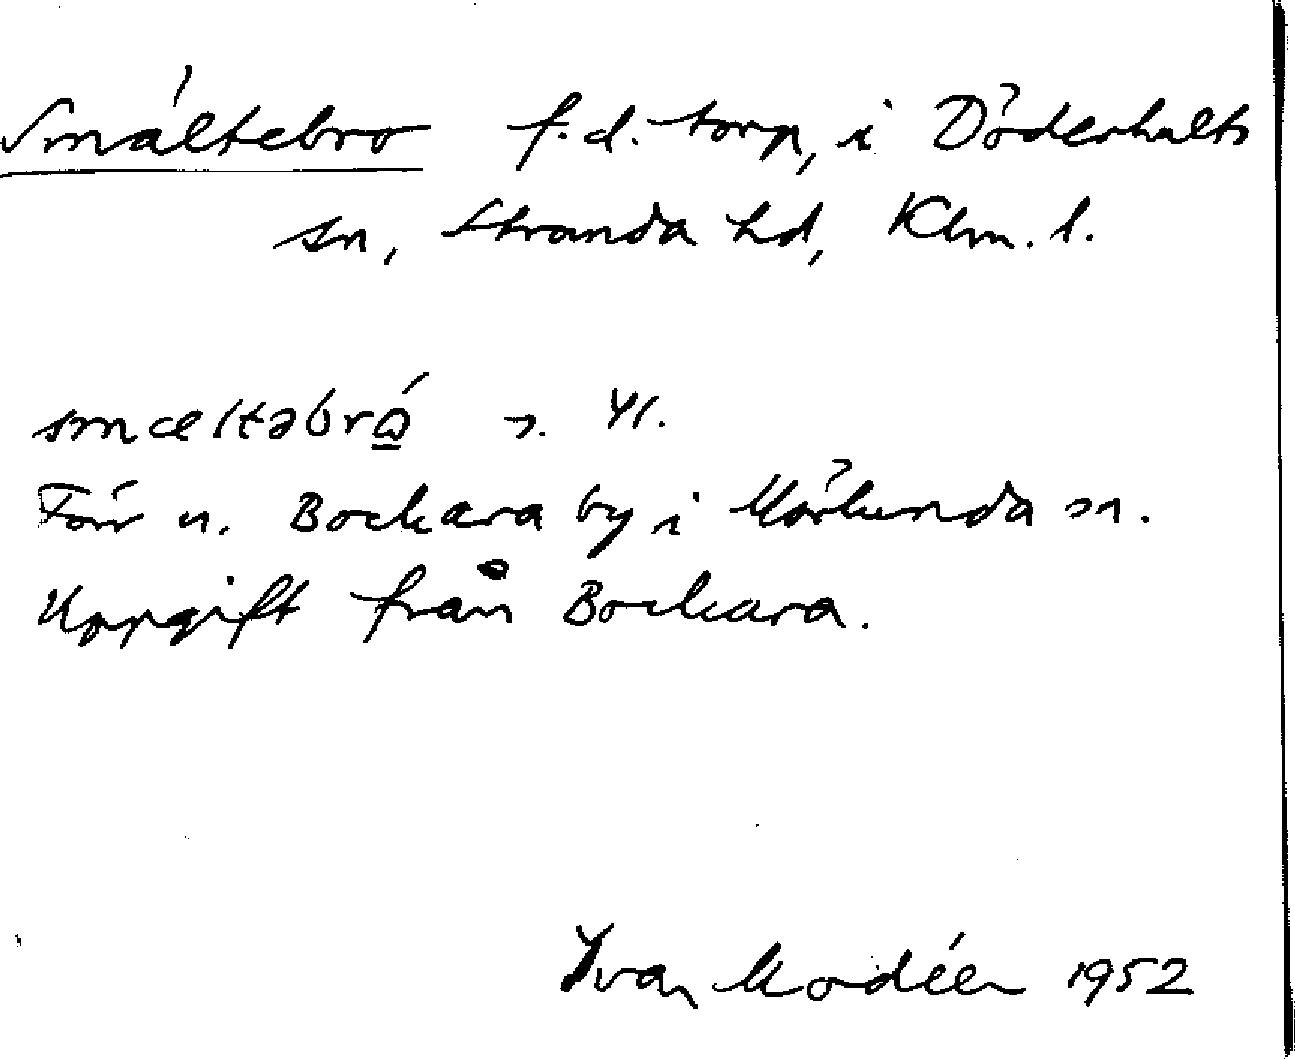 Smältebro f.d. torp, i Döderhults
sn, Stranda hd, Klm. l.
smæltəbró
n. Bockara by i Mörlunda sn.
Uppgift från Bockara.
Ivar Modéer 1952